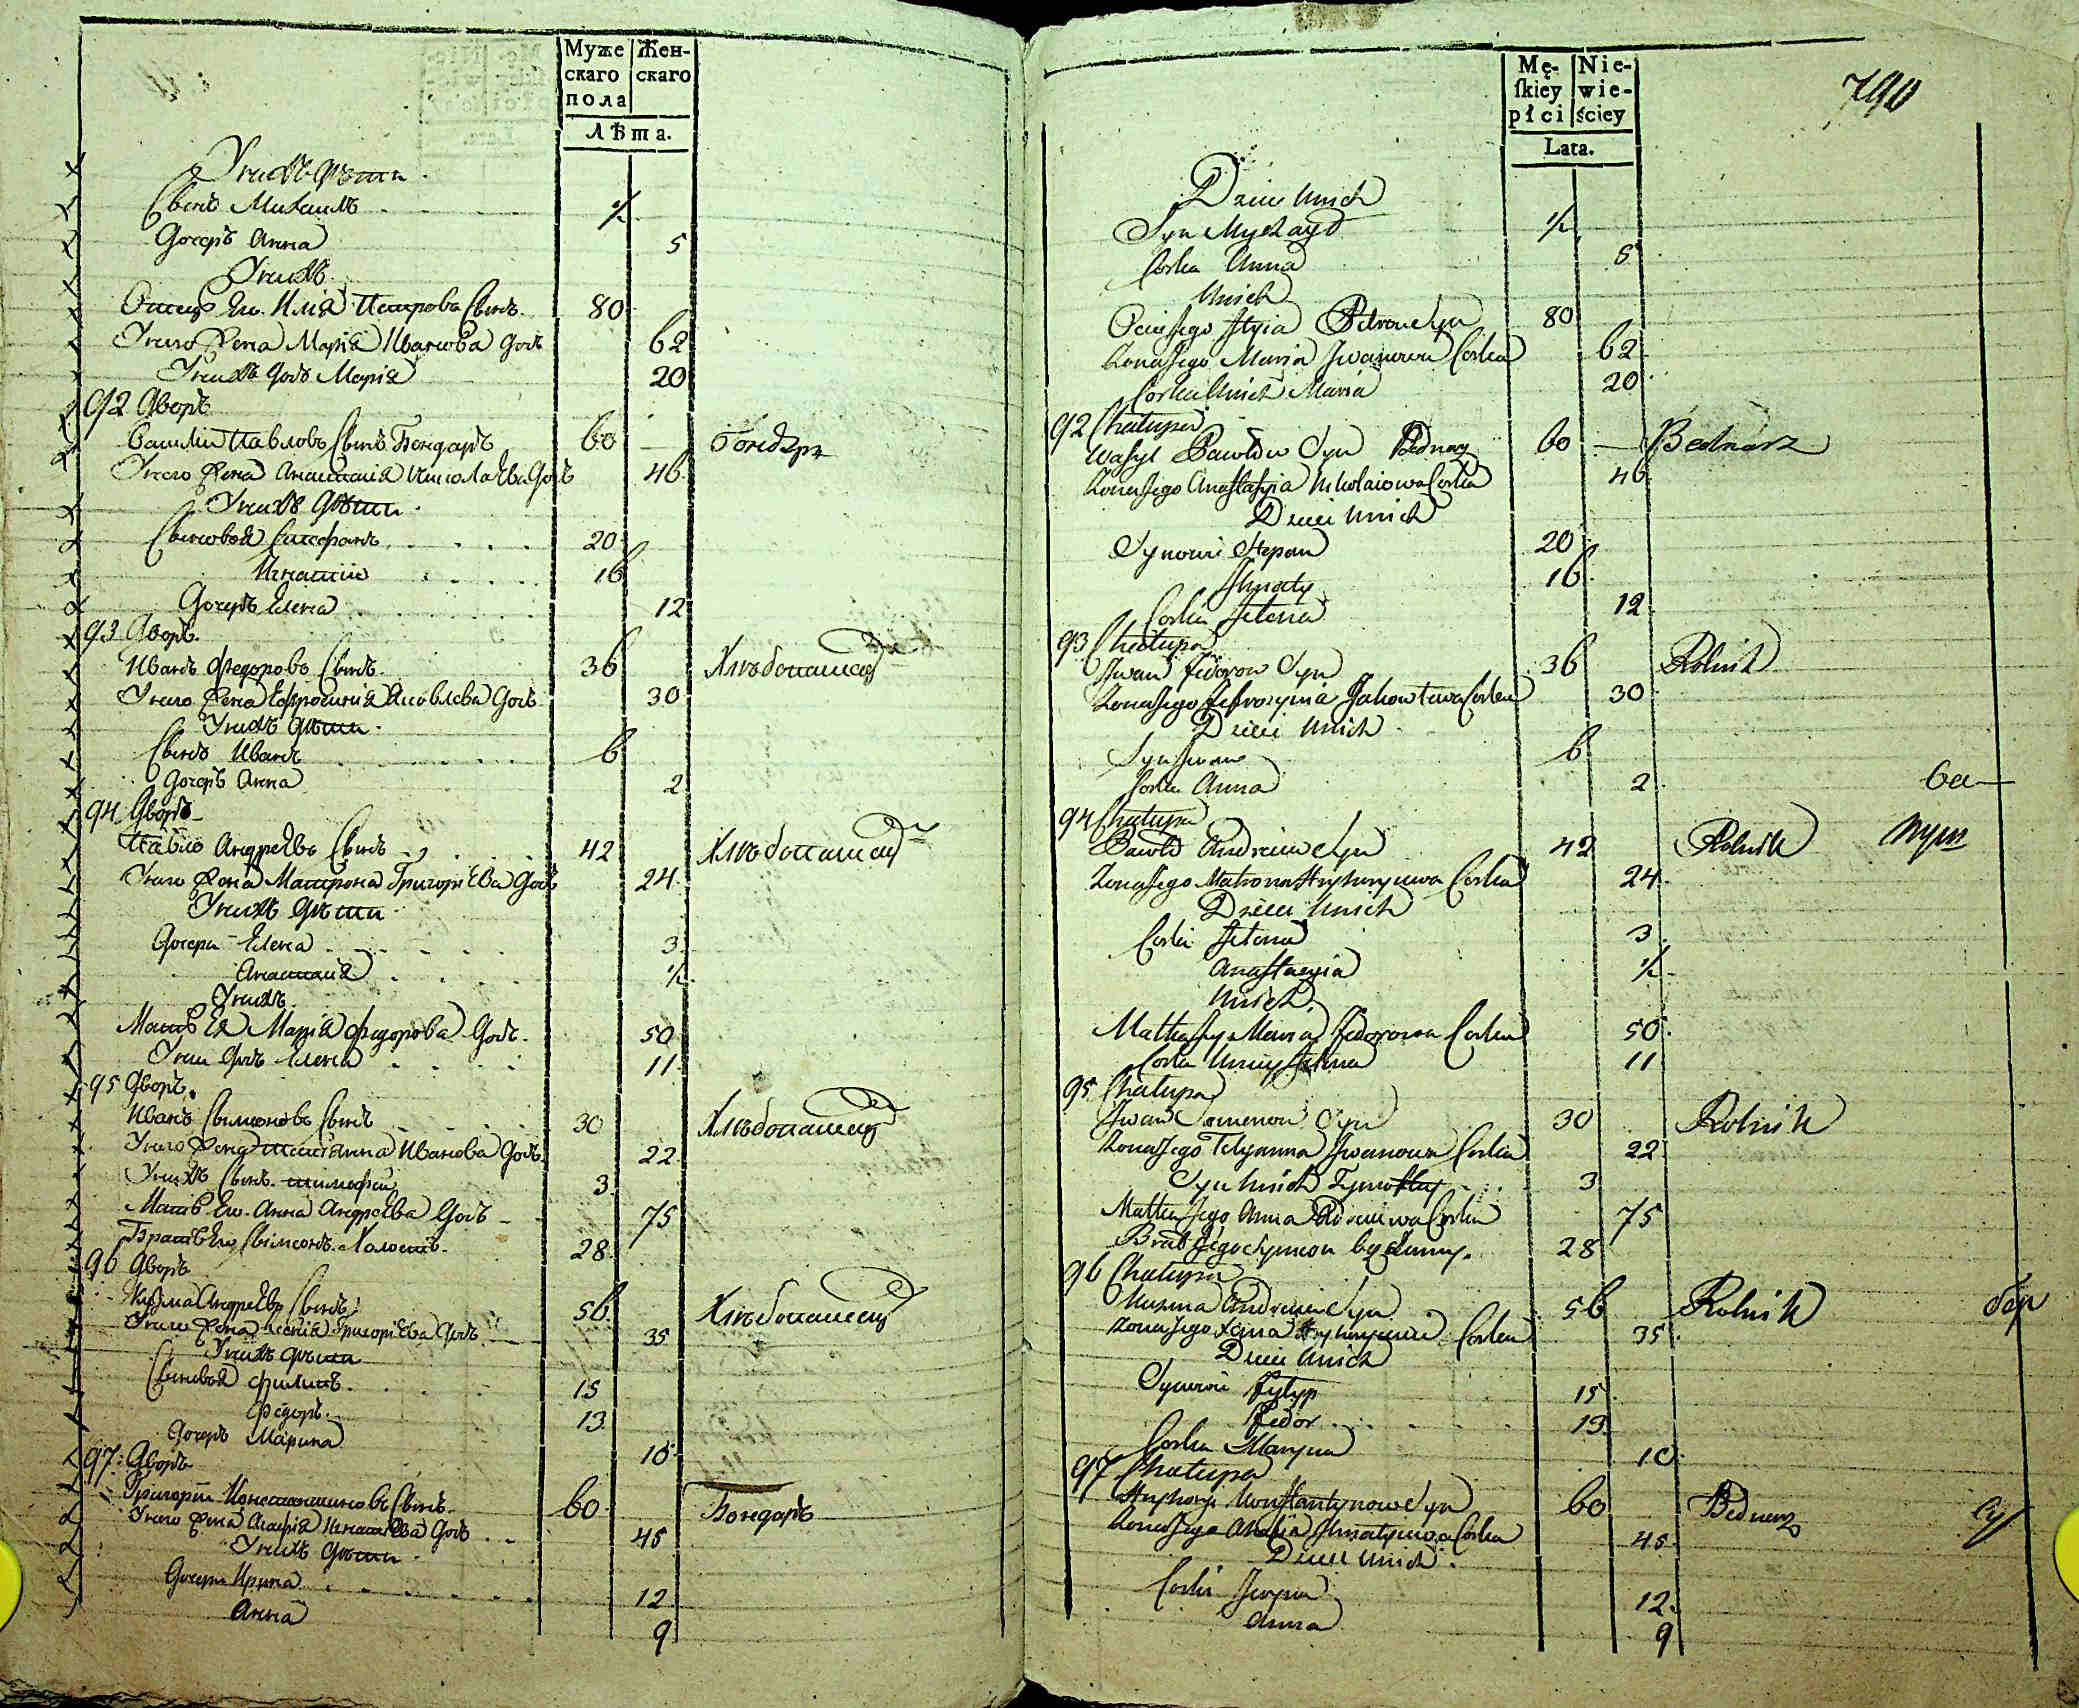 Муже Жен-
скаго скаго
пола
Лѣта.
У нихъ дѣти
Сынъ Михаилъ ½
Дочерь Анна 5
У нихъ
Отецъ Ею. Илiя Петровъ Сынъ. 80
У него Жена Марiя Иванова Дочь 62
У нихъ дочь Марiя 20
92 Дворъ
Василiй Павловъ Сынъ Бондарь 60 бондарь
У него Жена Анастасiя Николаева Дочь 46
У нихъ дѣти
Сыновья Стефанъ 20
Игнатiй 16
Дочерь Елена 12
93 Дворъ.
Иванъ Федоровъ Сынъ. 36 Хлѣбопашецъ
У него Жена Ефросинiя Яковлева Дочь 30
У нихъ дѣти
Сынъ Иванъ 6
Дочерь Анна 2
94 Дворъ
Павло Андреевъ Сынъ 42 Хлѣбопашецъ
У него Жена Матрона Григорiева Дочь 24
У нихъ дѣти
Дочери Елена 3
Анастасiя ½
У нихъ
Мать Ея Марiя Федорова Дочь. 50
У ней дочь Елена 11
95 Дворъ.
Иванъ Сымеоновъ Сынъ 30 Хлѣбопашецъ
У него Жена Татiанна Иванова Дочь 22
У нихъ Сынъ Тимофей 3
Мать Ею. Анна Андреева Дочь 75
Братъ Ею Сымеонъ Холостъ. 28
96 Дворъ
Кузма Андреевъ Сынъ 56 Хлѣбопашецъ
У него Жена Ксенiя Григорiева Дочь 35
У нихъ дѣти
Сыновья Филипъ. 15
Федоръ. 13
Дочерь Марина 10
97. Дворъ
Григорiй Константиновъ Сынъ 60 Бондарь
У него Жена Агафiя Игнатiева Дочь 45
У нихъ дѣти
Дочери Ирина 12
Анна 9
790
Mę- Nie-
ſkiey wie-
płci ściey
Lata.
Dzieci Unich
Syn Mychayło ½
Corka Anna 5
Unich
Ociec Jego Jlyia Petrow Syn 80
Zona Jego Maria Jwanowa Corka 62
Corka Unich Maria 20
92 Chałupa
Wasyl Pawłow Syn Bednarz 60 Bednarz
Zona Jego Anastasyia Nikołaiowa Corka 46
Dzieci Unich
Synowie Stepan 20
Jhnaty 16
Corka Jelena 12
93 Chałupa
Jwan Fedorow Syn 36 Rolnik
Zona Jego Jefrozynia Jakowlewa Corka 30
Dzieci Unich
Syn Jwan 6
Corka Anna 2
94 Chałupa
Pawło Andreiew Syn 42 Rolnik
Zona Jego Matrona Hryhoryiewa Corka 24
Dzieci Unich
Corki Jelena 3
Anastasyia ½
Unich
Matka Jey Maria Fedorowa Corka 50
Corka Uniey Jelena 11
95 Chałupa
Jwan Semenow Syn 30 Rolnik
Zona Jego Tetyanna Jwanowa Corka 22
Syn Unich Tymofiey 3
Matka Jego Anna Andreiewa Corka 75
Brat Jego Symeon bezżenny. 28
96 Chałupa
Kuzma Andreiew Syn 56 Rolnik
Zona Jego Xenia Hryhoryiewa Corka 35
Dzieci Unich
Synowie Fylyp 15
Fedor 13
Corka Maryna 10
97 Chałupa
Hryhory Konstantynow Syn 60 Bednarz
Zona Jego Ahafia Jhnatyiewa Corka 45
Dzieci Unich
Corki Jryna 12
Anna 9